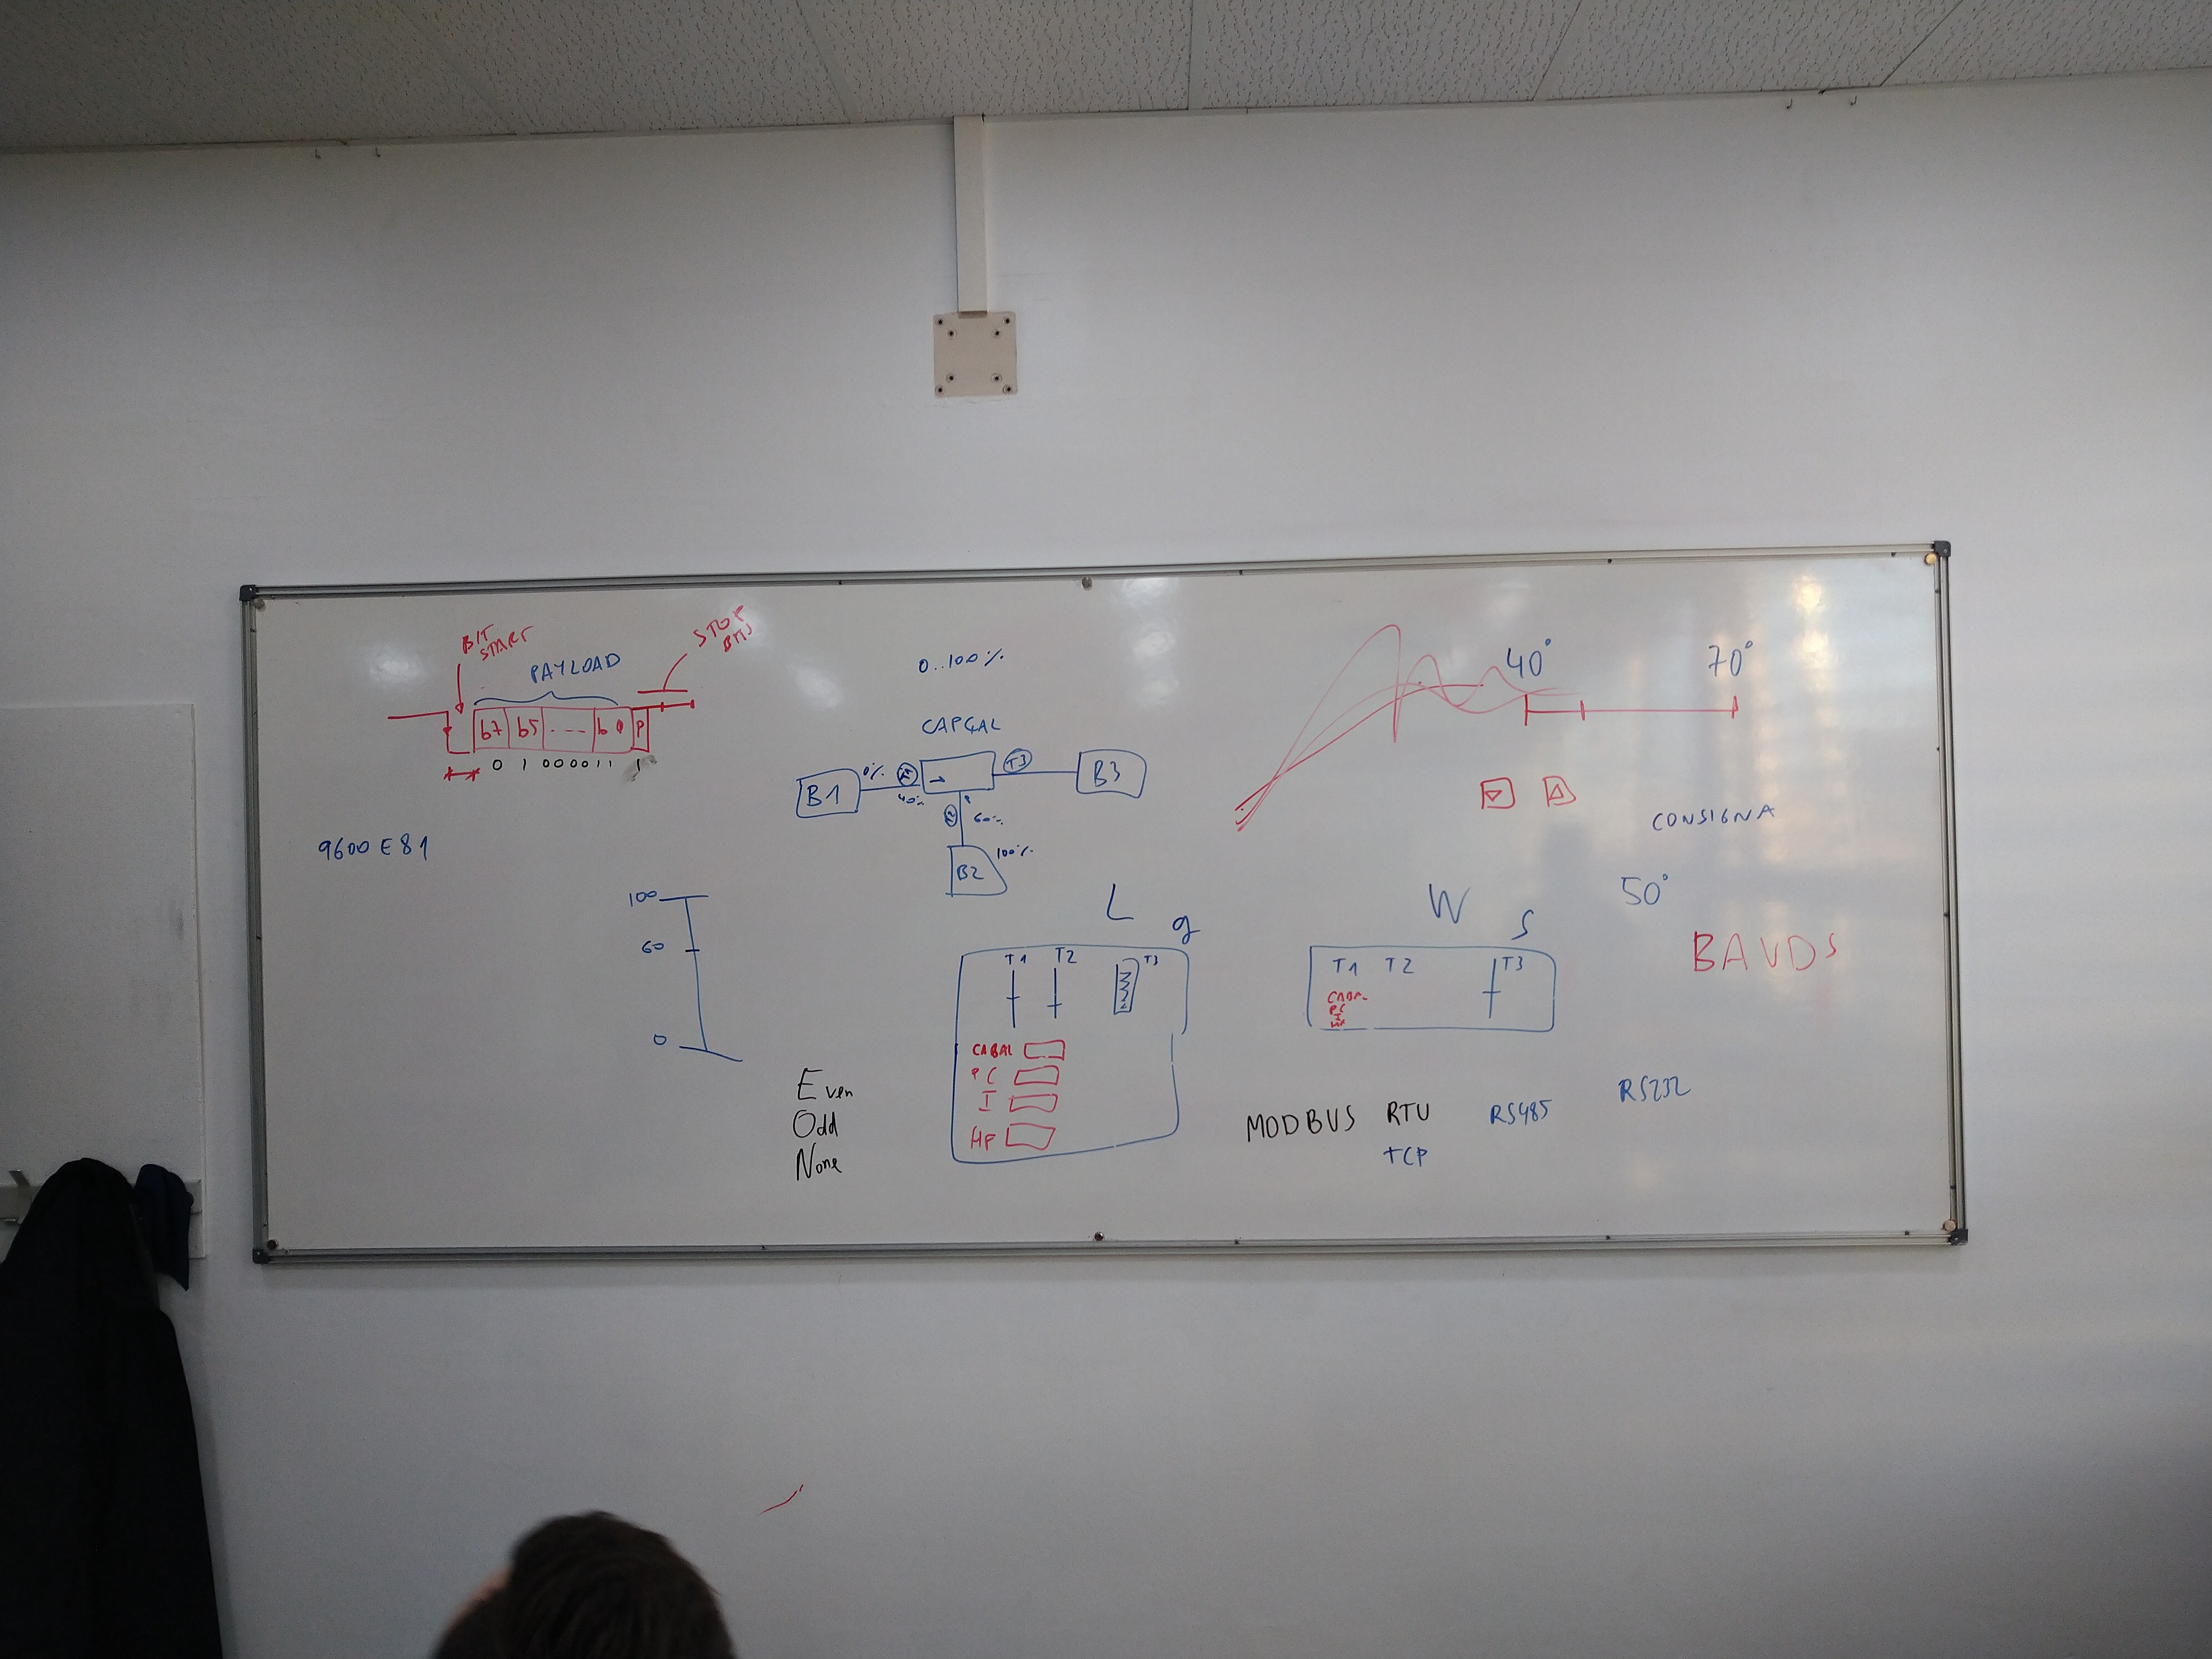 BIT
START
PAYLOAD
STOP
BITS
b7 b5 --- b0 P
0 1 0000 11 1
9600 E 81
100
60
0
0..100%
CAPÇAL
B1
0%
40%
T3
B3
60%
B2
100%
40° 70°
CONSIGNA
50°
BAUDS
L
g
T1 T2 T3
CABAL
PC
I
HF
W
S
T1 T2 T3
CABAL
PC
I
HF
Even
Odd
None
MODBUS RTU RS485 RS232
TCP